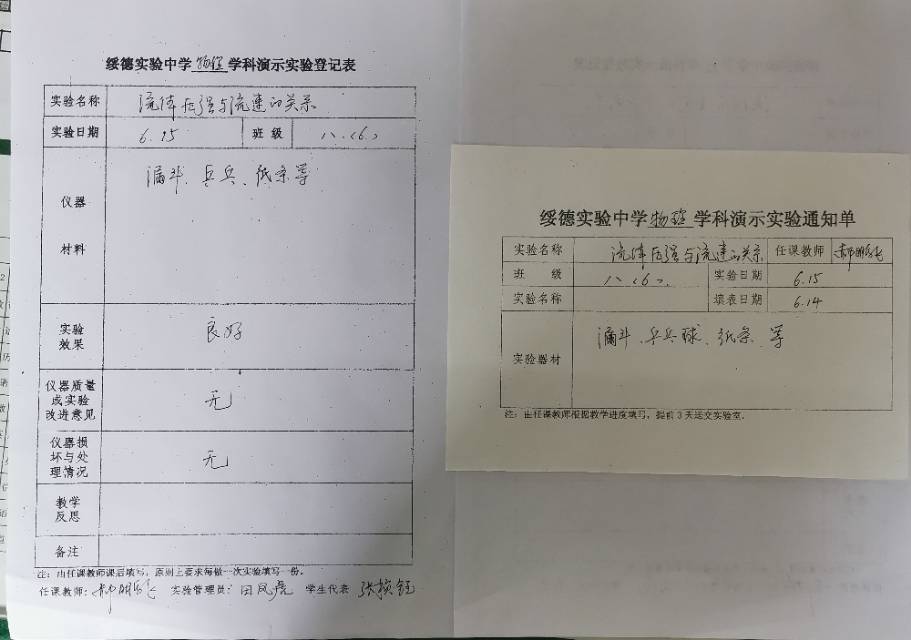 绥德实验中学物理学科演示实验登记表
实验名称 流体压强与流速的关系
实验日期 6.15 班级 八.(6).
仪器
材料
漏斗、乒乓、纸条等
实验
效果
良好
仪器质量
或实验
改进意见
无
仪器损
坏与处
理情况
无
教学
反思
备注
注：由任课教师课后填写，原则上要求每做一次实验填写一份。
任课教师： 实验管理员：田凤虎 学生代表
绥德实验中学物理学科演示实验通知单
实验名称 流体压强与流速的关系 任课教师
班 级 八.(6). 实验日期 6.15
实验名称 填表日期 6.14
实验器材 漏斗、乒乓球、纸条、等
注：由任课教师根据教学进度填写，提前3天送交实验室。